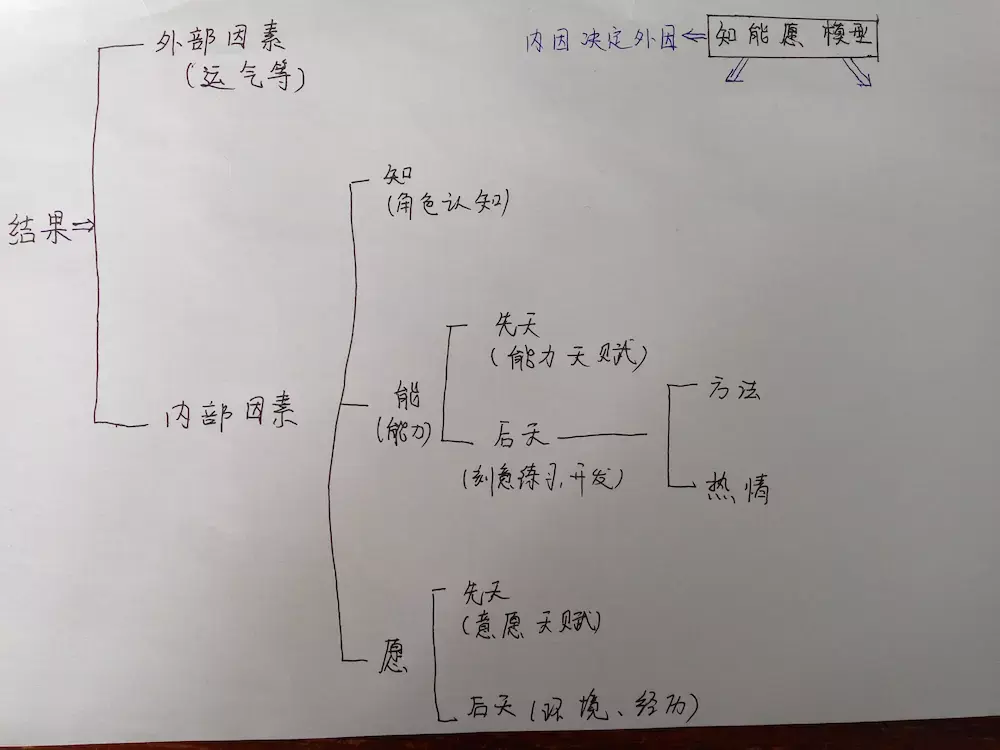 外部因素
(运气等)
内因决定外因
知能愿模型
结果
知
(角色认知)
先天
(能力天赋)
能
(能力)
方法
后天
(刻意练习,开发)
热情
内部因素
先天
(意愿天赋)
愿
后天(环境、经历)